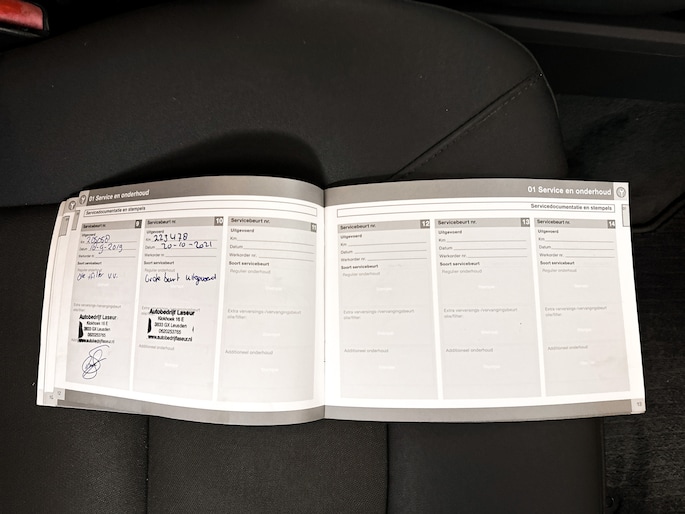 01 Service en onderhoud
Servicedocumentatie en stempels
Servicebeurt nr. 9
Uitgevoerd
Km
Datum 18-9-2019
Werkorder nr.
Soort servicebeurt
Regulier onderhoud
Olie filter v.v.
Extra verversings-/vervangingsbeurt
olie/filter:
Autobedrijf Laseur
Kiekhoek 16 E
3833 GX Leusden
0620253765
www.autobedrijflaseur.nl
Servicebeurt nr. 10
Uitgevoerd
Km 223478
Datum 20-10-2021
Werkorder nr.
Soort servicebeurt
Regulier onderhoud
Grote beurt uitgevoerd
Autobedrijf Laseur
Kiekhoek 16 E
3833 GX Leusden
0620253765
www.autobedrijflaseur.nl
Additioneel onderhoud
Servicebeurt nr. 11
Uitgevoerd
Km
Datum
Werkorder nr.
Soort servicebeurt
Regulier onderhoud
Extra verversings-/vervangingsbeurt
olie/filter:
Additioneel onderhoud
12
01 Service en onderhoud
Servicedocumentatie en stempels
Servicebeurt nr. 12
Uitgevoerd
Km
Datum
Werkorder nr.
Soort servicebeurt
Regulier onderhoud
Extra verversings-/vervangingsbeurt
olie/filter:
Additioneel onderhoud
Servicebeurt nr. 13
Uitgevoerd
Km
Datum
Werkorder nr.
Soort servicebeurt
Regulier onderhoud
Extra verversings-/vervangingsbeurt
olie/filter:
Additioneel onderhoud
Servicebeurt nr. 14
Uitgevoerd
Km
Datum
Werkorder nr.
Soort servicebeurt
Regulier onderhoud
Extra verversings-/vervangingsbeurt
olie/filter:
Additioneel onderhoud
13